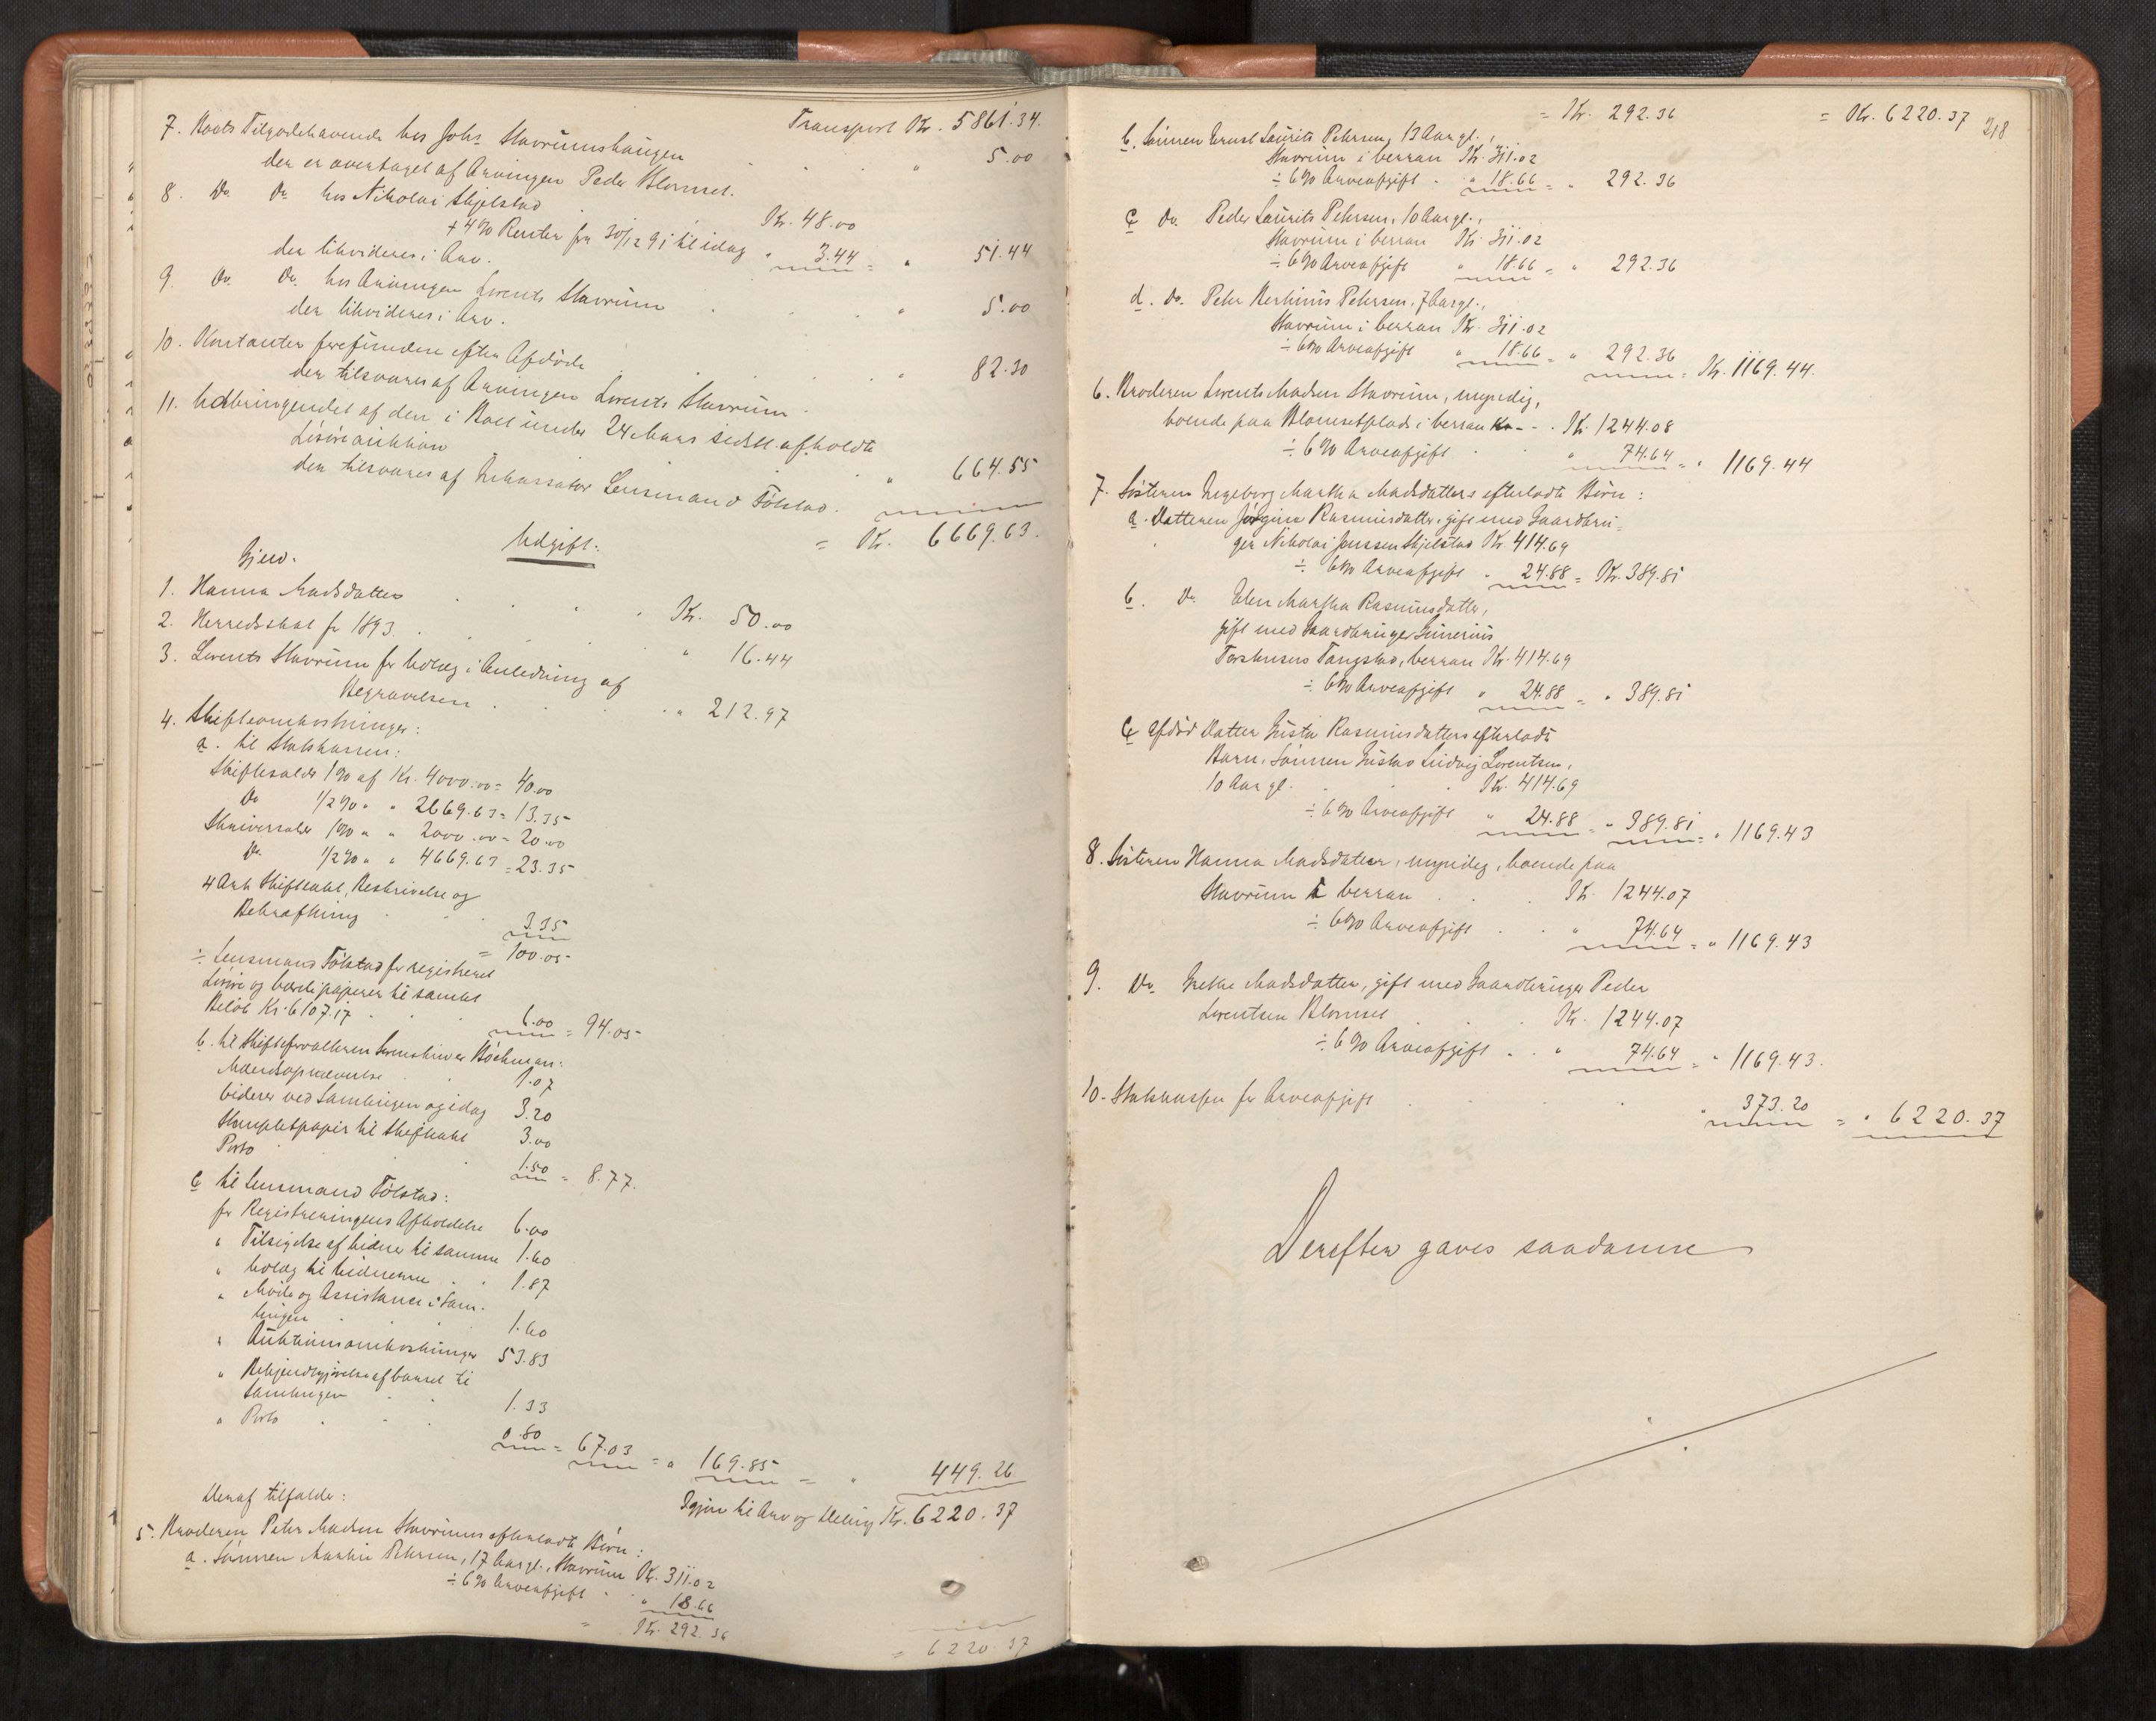 Transport Kr. 5861.34.
7. Boets Tilgodehavende hos Johs. Stavrumshaugen " 5.00
der er overtaget af Arvingen Peder Blomset.
8. Do. Do. hos Nikolai Skjelstad Kr. 48.00
+ 4% Renter fra 30/12 91 til idag " 3.44 = " 51.44
der likvideres i Arv.
9. Do. Do. hos Arvingen Lorents Stavrum " 5.00
der likvideres i Arv.
10. Kontanter forefundne efter Afdøde " 82.30
der tilsvares af Arvingen Lorents Stavrum.
11. Udbringendet af den i Boet under 24 Mars sidstl. afholdte
Løsøreauktion " 664.55
der tilsvares af Inkassator Lensmand Følstad.
= Kr. 6669.63.
Udgift.
Gjeld.
1. Hanna Madsdatter Kr. 50.00
2. Herredsskat for 1893. " 16.44
3. Lorents Stavrum for Udlæg i Anledning af
Begravelsen " 212.97
4. Skifteomkostninger:
a. til Statskassen:
Skiftesalær 1% af Kr. 4000.00 = 40.00
Do 1/2% " " 2669.63 = 13.35
Skriversalær 1% " " 2000.00 = 20.00
Do. 1/2% " " 4669.63 = 23.35
4 Ark Skifteakt, Beskrivelse og
Bekræftning 3.35
= 100.05
÷ Lensmand Følstad for registreret
Løsøre og Værdipapirer til samlet
Beløb Kr. 6107.17 6.00 = 94.05
b. til Skifteforvalteren Sorenskriver Bøckman:
1.07
Vidner ved Samlingen og idag 3.20
Stempletpapir til Skifteakt 3.00
Porto 1.50 = 8.77.
c til Lensmand Følstad:
for Registreringens Afholdelse 6.00
" Tilsigelse af Vidner til samme 1.60
" Udlæg til Vidnerne 1.87
" Møde og Assistance i Sam-
lingen 1.60
" Auktionsomkostninger 53.83
" Bekjendtgjørelse af Varsel til
Samlingen 1.33
" Porto 0.80 = 67.03 = " 169.85 = " 449.26
Igjen til Arv og Deling Kr. 6220.37
Deraf tilfalder:
5. Broderen Peter Madsen Stavrums efterladte Børn:
a. Sønnen Martin Petersen, 17 Aar gl., Stavrum Kr. 311.02
÷ 6% Arveafgift " 18.66
= Kr. 292.36
= 6220.37
= Kr. 292.36 = Kr. 6220.37
218
b. Sønnen Ernst Laurits Petersen, 13 Aar gl.,
Stavrum i Verran Kr. 311.02
÷ 6% Arveafgift " 18.66 = " 292.36
c Do. Peder Laurits Petersen, 10 Aar gl.,
Stavrum i Verran Kr. 311.02
÷ 6% Arveafgift " 18.66 = " 292.36
d. Do. Peter Petersen, 7 Aar gl.,
Stavrum i Verran Kr. 311.02
÷ 6% Arveafgift " 18.66 = " 292.36 = Kr. 1169.44.
6. Broderen Lorents Madsen Stavrum, myndig,
boende paa Blomsetplads i Verran Kr. 1244.08
÷ 6% Arveafgift " 74.64 = " 1169.44
7. Søsteren Ingeborg Martha Madsdatters efterladte Børn:
a. Datteren Jørgine Rasmusdatter, gift med Gaardbru-
ger Nikolai Jonssen Skjelstad Kr. 414.69
÷ 6% Arveafgift " 24.88 = Kr. 389.81
b. Do. Elen Martha Rasmusdatter,
gift med Gaardbruger Gunerius
Torstensen Tangstad, Verran Kr. 414.69
÷ 6% Arveafgift " 24.88 = " 389.81
c afdød Datter Gusta Rasmusdatters efterladte
Barn, Sønnen Gustav Ludvig Lorentsen,
10 Aar gl. Kr. 414.69
÷ 6% Arveafgift " 24.88 = " 389.81 = " 1169.43
8. Søsteren Hanna Madsdatter, myndig, boende paa
Stavrum i Verran Kr. 1244.07
÷ 6% Arveafgift " 74.64 = " 1169.43
9. Do. Grethe Madsdatter, gift med Gaardbruger Peder
Lorentsen Blomset Kr. 1244.07
÷ 6% Arveafgift " 74.64 = " 1169.43.
10. Statskassen for Arveafgift " 373.20 = " 6220.37
Derefter gaves saadanne